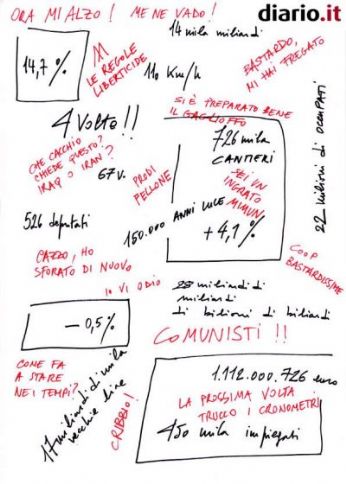 diario.it
ORA MI ALZO! ME NE VADO!
14 mila miliardi
14,7%
LE REGOLE
LIBERTICIDE
110 Km/h
BASTARDO,
MI HAI FREGATO
SI È PREPARATO BENE
IL GAGLIOFFO
4 Volte!!
726 mila
CANTIERI
22 milioni di OCCUPATI
CHE CACCHIO
CHIEDE QUESTO?
IRAQ O IRAN?
67 V.
PRODI
FELLONE
SEI UN
INGRATO
MIMUN
526 deputati
150.000 ANNI LUCE
+4,1%
CAZZO, HO
SFORATO DI NUOVO
COOP
BASTARDISSIME
IO VI ODIO
28 miliardi di
miliardi
di bilioni di biliardi
-0,5%
COMUNISTI!!
COME FA
A STARE
NEI TEMPI?
17 miliardi di mila
vecchie lire
CRIBBIO!
1.112.000.726 euro
LA PROSSIMA VOLTA
TRUCCO I CRONOMETRI
450 mila impiegati